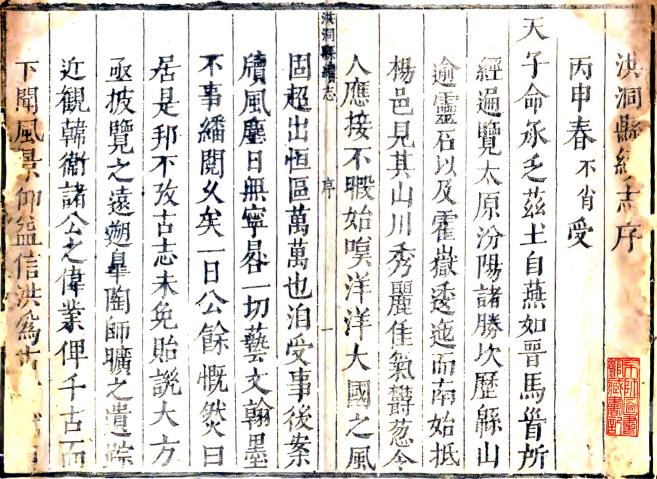 洪洞縣續志序
丙申春不肖受
天子命承乏茲土自燕如晉馬首所
經遍覽太原汾陽諸勝次歷綿山
逾靈石以及霍嶽逶迤而南始抵
楊邑見其山川秀麗佳氣欝葱令
人應接不暇始嘆洋洋大國之風
固超出恒區萬萬也洎受事後案
洪洞縣續志 序 一
牘風塵日無寧晷一切藝文翰墨
不事繙閱久矣一日公餘慨然曰
居是邦不攷古志未免貽説大方
亟披覽之遠遡臯陶師曠之遺踪
近觀韓衛諸公之偉業俾千古而
下聞風景仰益信洪爲古